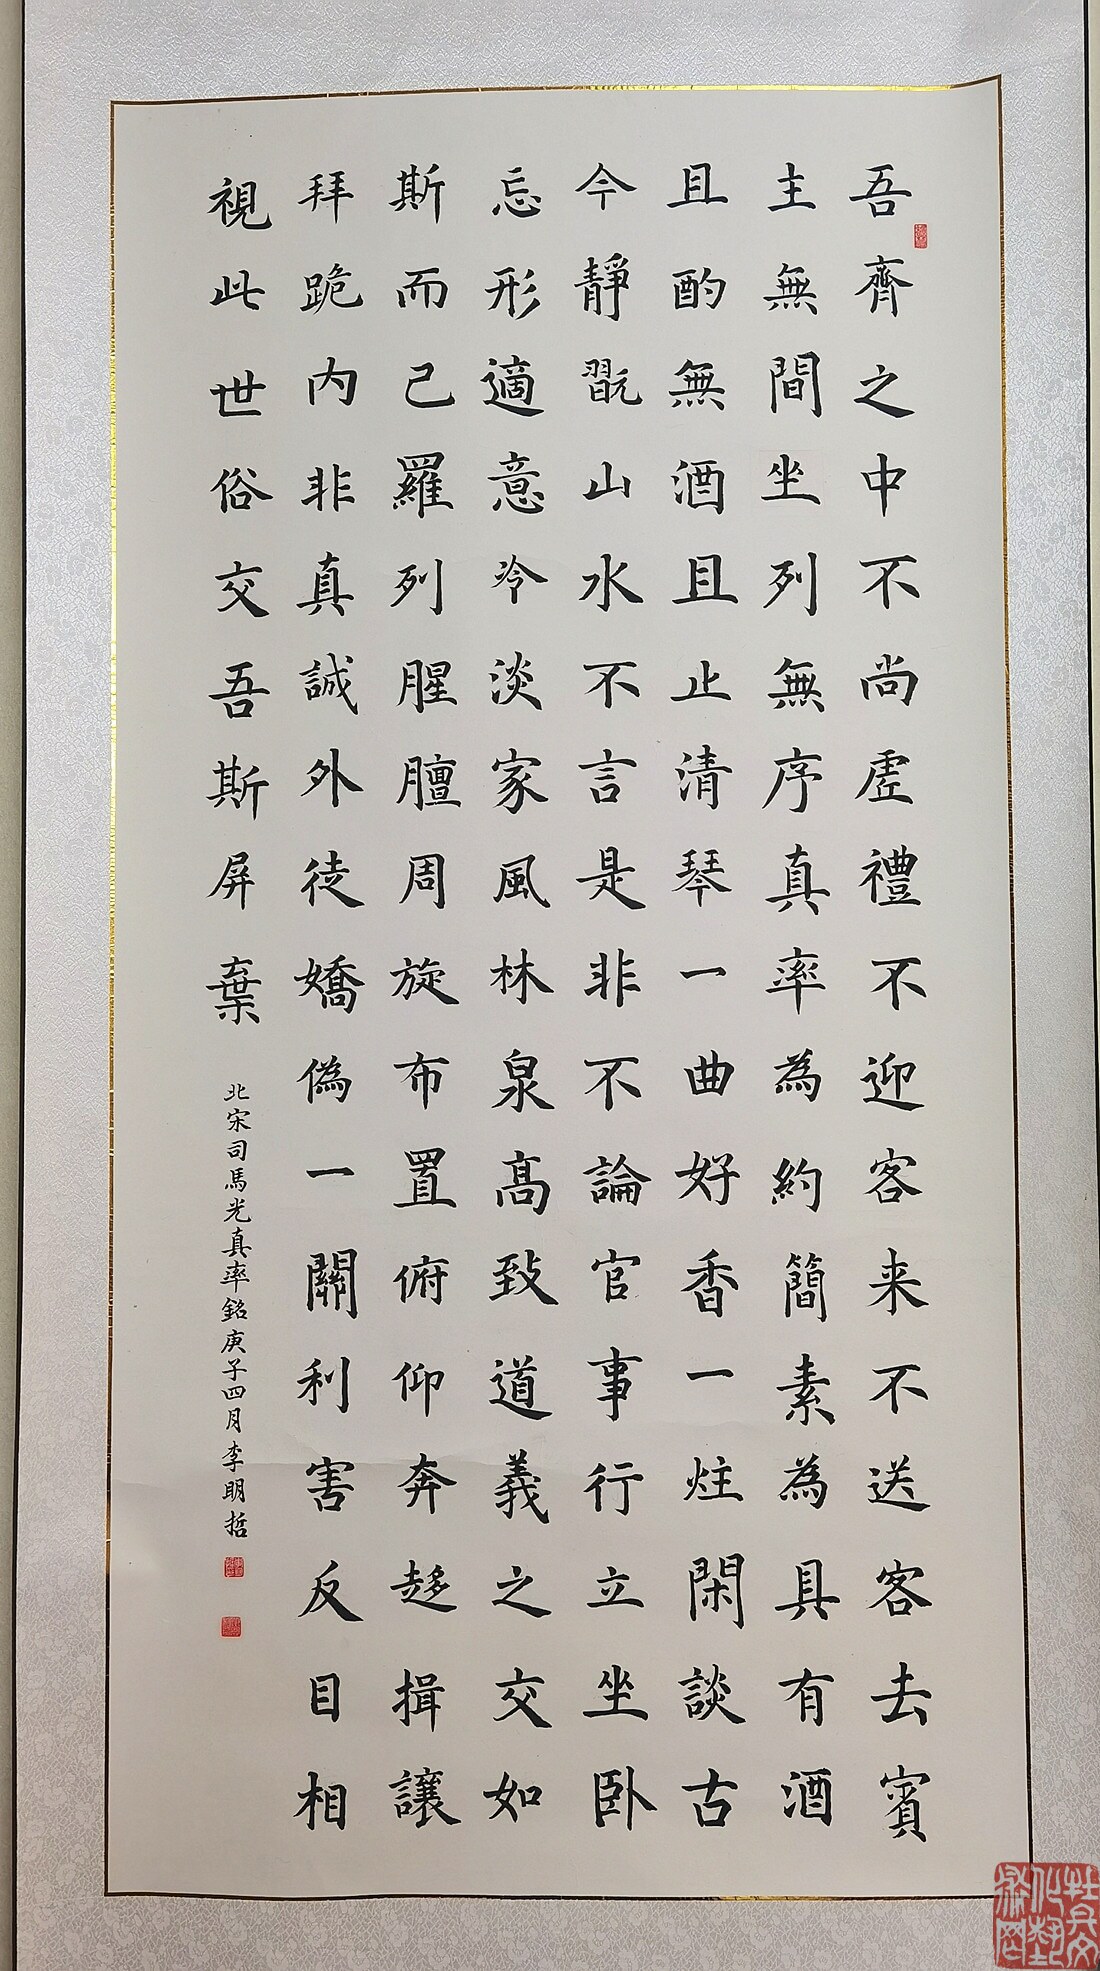 吾齊之中不尚虛禮不迎客来不送客去賓
主無間坐列無序真率為約簡素為具有酒
且酌無酒且止清琴一曲好香一炷閑談古
今靜翫山水不言是非不論官事行立坐卧
忘形適意冷淡家風林泉高致道義之交如
斯而己羅列腥膻周旋布置俯仰奔趍揖讓
拜跪内非真誠外徒嬌偽一關利害反目相
視此世俗交吾斯屏棄
北宋司馬光真率銘庚子四月李明哲
牡丹文化藝術網